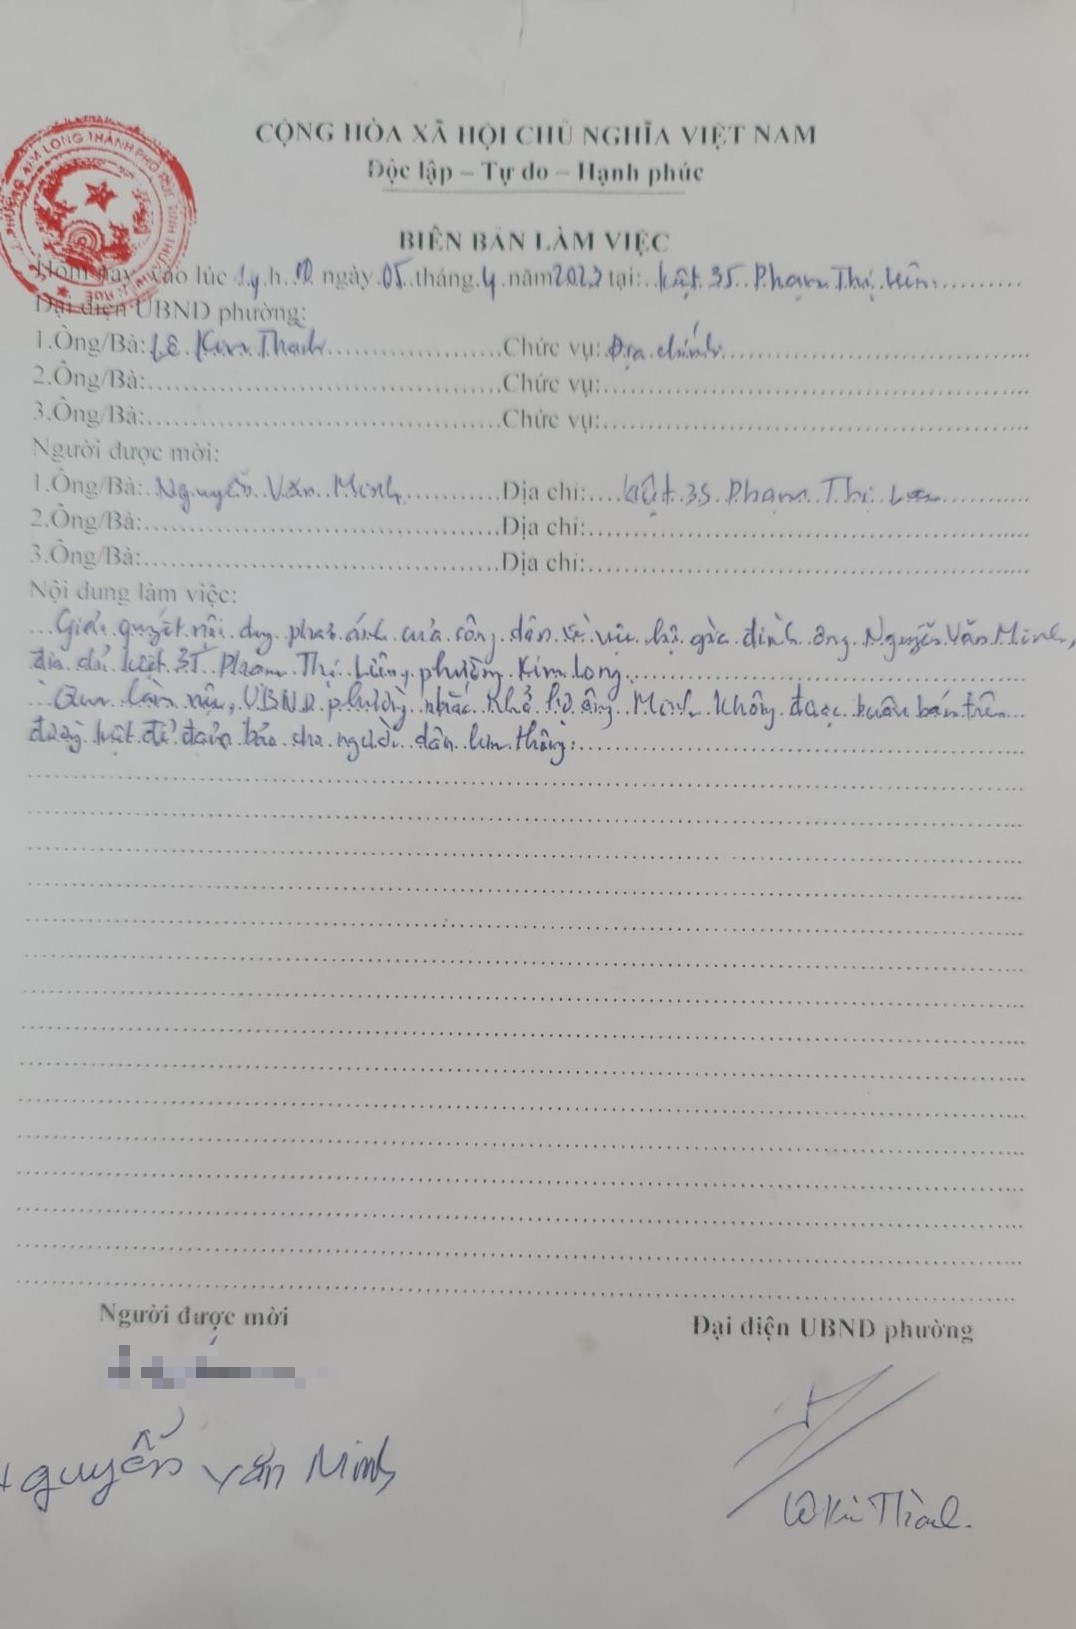 CỘNG HÒA XÃ HỘI CHỦ NGHĨA VIỆT NAM
Độc lập – Tự do – Hạnh phúc
BIÊN BẢN LÀM VIỆC
Hôm nay, vào lúc h. 00 ngày 05 tháng 4 năm 2023 tại: kiệt 35 Phạm Thị Liên
Đại diện UBND phường:
1.Ông/Bà: Lê Kim Thành Chức vụ: Địa chính
2.Ông/Bà: Chức vụ:
3.Ông/Bà: Chức vụ:
Người được mời:
1.Ông/Bà: Nguyễn Văn Minh Địa chỉ: kiệt 35 Phạm Thị Liên
2.Ông/Bà: Địa chỉ:
3.Ông/Bà: Địa chỉ:
Nội dung làm việc:
Giải quyết nội dung phản ánh của công dân về việc hộ gia đình ông Nguyễn Văn Minh,
địa chỉ kiệt 35 Phạm Thị Liên, phường Kim Long
Qua làm việc, UBND phường nhắc nhở hộ ông Minh không được buôn bán trên
đường kiệt để đảm bảo cho người dân lưu thông.
Người được mời
Đại diện UBND phường
Nguyễn Văn Minh
Lê Kim Thành